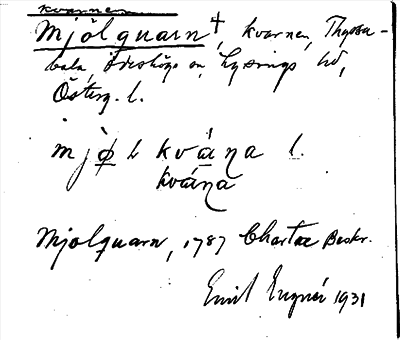 kvarnen
Mjölquarn †, kvarnen, Thyssa-
bala, Ödeshögs sn, Lysings hd,
Österg. l.
mjø̀l kváṇa l.
kváṇa
Mjolquarn, 1787 Chartae Beskr.
Emil Engnér 1931